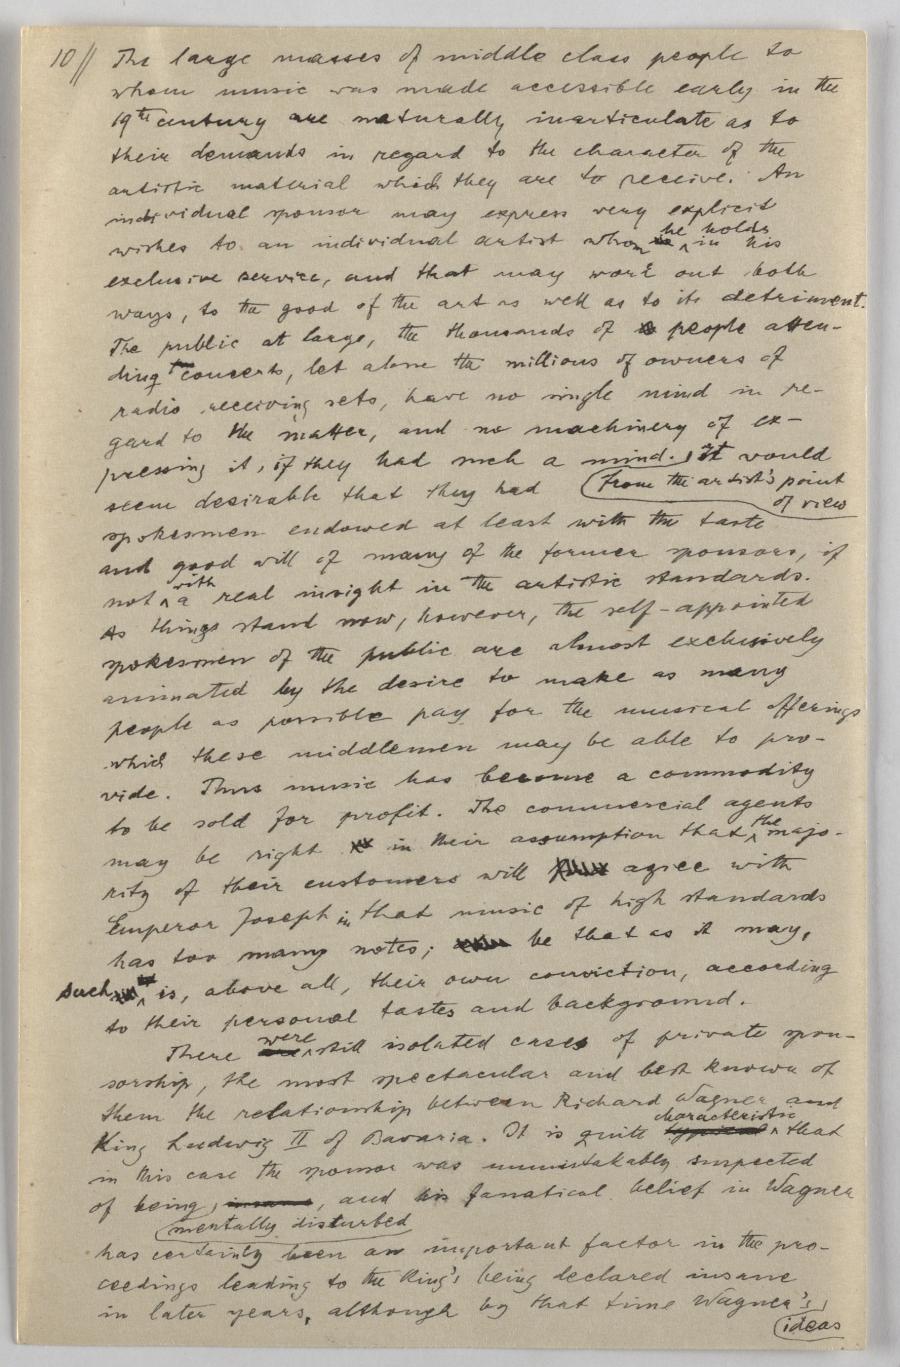 10// The large masses of middle class people to
whom music was made accessible early in the
19th century are naturally inarticulate as to
their demands in regard to the character of the
artistic material which they are to receive. An
individual sponsor may express very explicit
wishes to an individual artist whom he holds in his
exclusive service, and that may work out both
ways, to the good of the art as well as to its detriment.
The public at large, the thousands of people atten-
ding the concerts, let alone the millions of owners of
radio receiving sets, have no single mind in re-
gard to the matter, and no machinery of ex-
pressing it, if they had such a mind. It would
seem desirable that they had (from the artist's point
of view
spokesmen endowed at least with the taste
and good will of many of the former sponsors, if
not with a real insight in the artistic standards.
As things stand now, however, the self-appointed
spokesmen of the public are almost exclusively
animated by the desire to make as many
people as possible pay for the musical offerings
which these middlemen may be able to pro-
vide. Thus music has become a commodity
to be sold for profit. The commercial agents
may be right in their assumption that the majo-
rity of their customers will agree with
Emperor Joseph in that music of high standards
has too many notes; be that as it may,
such is, above all, their own conviction, according
to their personal tastes and background.
There were still isolated cases of private spon-
sorship, the most spectacular and best known of
them the relationship between Richard Wagner and
King Ludwig II of Bavaria. It is quite characteristic that
in this case the sponsor was unmistakably suspected
of being insane, and his fanatical belief in Wagner
mentally disturbed
has certainly been an important factor in the pro-
ceedings leading to the King's being declared insane
in later years, although by that time Wagner's
ideas